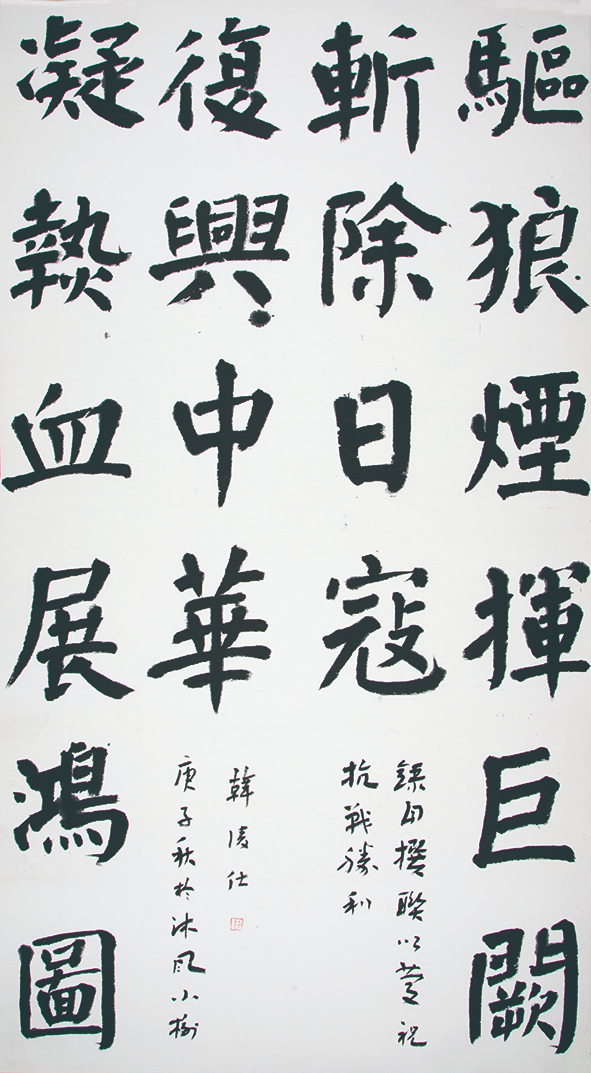 驅狼煙揮巨闕
斬除日寇
錄自撰聯以慶祝
抗戰勝利
凝熱血展鴻圖
復興中華
庚子秋於沐風小榭
韓仕